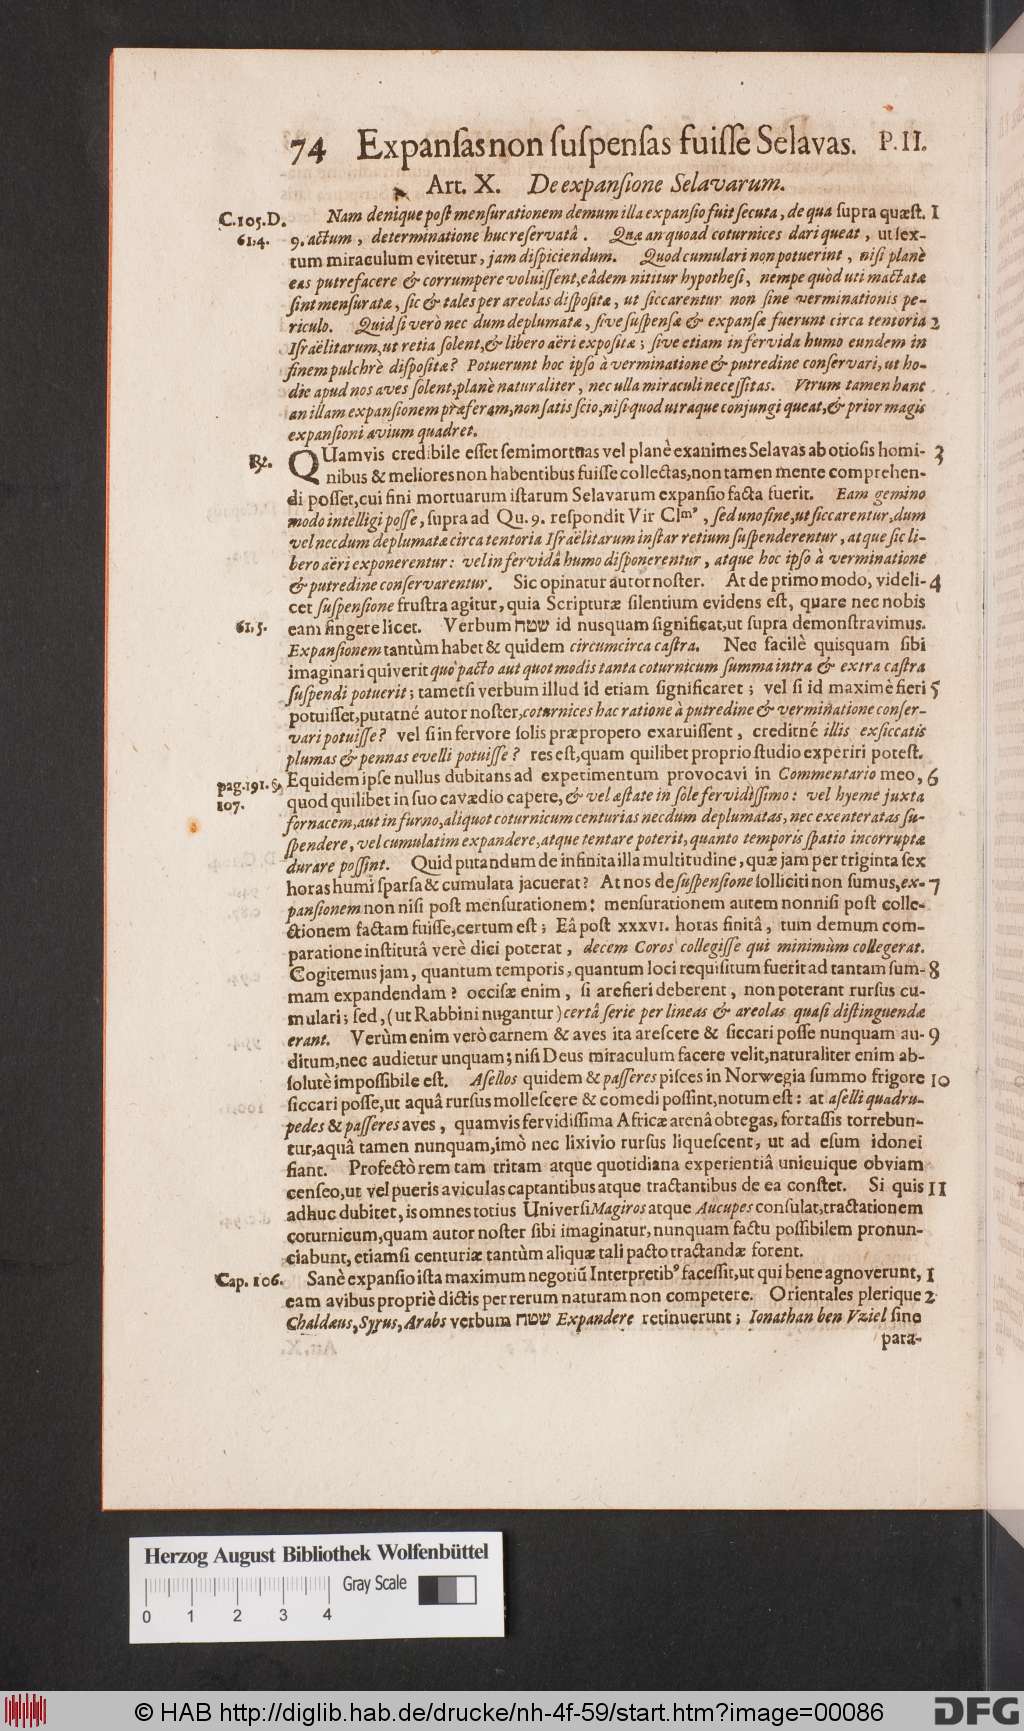 74 Expansas non suspensas fuisse Selavas. P. II.
Art. X. De expansione Selavarum.
C.105.D. Nam denique post mensurationem demum illa expansio fuit secuta, de qua supra quæst. 1
61.4. 9. actum, determinatione huc reservatâ. Quæ an quoad coturnices dari queat, ut sex-
tum miraculum evitetur, jam dispiciendum. Quod cumulari non potuerint, nisi planè
eas putrefacere & corrumpere voluissent, eâdem nititur hypothesi, nempe quòd uti mactatæ
sint mensuratæ, sic & tales per areolas dispositæ, ut siccarentur non sine verminationis pe-
riculo. Quid si verò nec dum deplumatæ, sive suspensæ & expansæ fuerunt circa tentoria 2
Israëlitarum, ut retia solent, & libero aëri expositæ; sive etiam in fervida humo eundem in
finem pulchrè dispositæ? Potuerunt hoc ipso à verminatione & putredine conservari, ut ho-
die apud nos aves solent, planè naturaliter, nec ulla miraculi necessitas. Utrum tamen hanc
an illam expansionem præferam, non satis scio, nisi quod utraque conjungi queat, & prior magis
expansioni avium quadret.
℞. QUamvis credibile esset semimortuas vel planè exanimes Selavas ab otiosis homi- 3
nibus & meliores non habentibus fuisse collectas, non tamen mente comprehen-
di posset, cui fini mortuarum istarum Selavarum expansio facta fuerit. Eam gemino
modo intelligi posse, supra ad Qu. 9. respondit Vir Clmꝰ, sed uno fine, ut siccarentur, dum
vel necdum deplumatæ circa tentoria Israëlitarum instar retium suspenderentur, atque sic li-
bero aëri exponerentur: vel in fervidâ humo disponerentur, atque hoc ipso à verminatione
& putredine conservarentur. Sic opinatur autor noster. At de primo modo, videli- 4
cet suspensione frustra agitur, quia Scripturæ silentium evidens est, quare nec nobis
61.5. eam fingere licet. Verbum שטח id nusquam significat, ut supra demonstravimus.
Expansionem tantùm habet & quidem circumcirca castra. Nec facilè quisquam sibi
imaginari quiverit quo pacto aut quot modis tanta coturnicum summa intra & extra castra
suspendi potuerit; tametsi verbum illud id etiam significaret; vel si id maximè fieri 5
potuisset, putatné autor noster, coturnices hac ratione à putredine & verminatione conser-
vari potuisse? vel si in fervore solis præpropero exaruissent, creditné illis exsiccatis
plumas & pennas evelli potuisse? res est, quam quilibet proprio studio experiri potest.
pag.191. & Equidem ipse nullus dubitans ad experimentum provocavi in Commentario meo, 6
107. quod quilibet in suo cavædio capere, & vel æstate in sole fervidissimo: vel hyeme juxta
fornacem, aut in furno, aliquot coturnicum centurias necdum deplumatas, nec exenteratas su-
spendere, vel cumulatim expandere, atque tentare poterit, quanto temporis spatio incorruptæ
durare possint. Quid putandum de infinita illa multitudine, quæ jam per triginta sex
horas humi sparsa & cumulata jacuerat? At nos de suspensione solliciti non sumus, ex- 7
pansionem non nisi post mensurationem: mensurationem autem nonnisi post colle-
ctionem factam fuisse, certum est; Eâ post XXXVI. horas finitâ, tum demum com-
paratione institutâ verè dici poterat, decem Coros collegisse qui minimùm collegerat.
Cogitemus jam, quantum temporis, quantum loci requisitum fuerit ad tantam sum- 8
mam expandendam? occisæ enim, si arefieri deberent, non poterant rursus cu-
mulari; sed, (ut Rabbini nugantur) certâ serie per lineas & areolas quasi distinguendæ
erant. Verùm enim verò carnem & aves ita arescere & siccari posse nunquam au- 9
ditum, nec audietur unquam; nisi Deus miraculum facere velit, naturaliter enim ab-
solutè impossibile est. Asellos quidem & passeres pisces in Norwegia summo frigore 10
siccari posse, ut aquâ rursus mollescere & comedi possint, notum est: at aselli quadru-
pedes & passeres aves, quamvis fervidissima Africæ arenâ obtegas, fortassis torrebun-
tur, aquâ tamen nunquam, imò nec lixivio rursus liquescent, ut ad esum idonei
fiant. Profectò rem tam tritam atque quotidiana experientiâ unicuique obviam
censeo, ut vel pueris aviculas captantibus atque tractantibus de ea constet. Si quis 11
adhuc dubitet, is omnes totius Universi Magiros atque Aucupes consulat, tractationem
coturnicum, quam autor noster sibi imaginatur, nunquam factu possibilem pronun-
ciabunt, etiamsi centuriæ tantùm aliquæ tali pacto tractandæ forent.
Cap. 106. Sanè expansio ista maximum negotiũ Interpretibꝰ facessit, ut qui bene agnoverunt, 1
eam avibus propriè dictis per rerum naturam non competere. Orientales plerique 2
Chaldæus, Syrus, Arabs verbum שטח Expandere retinuerunt; Ionathan ben Vziel sine
para-
Herzog August Bibliothek Wolfenbüttel
Gray Scale
0 1 2 3 4
© HAB http://diglib.hab.de/drucke/nh-4f-59/start.htm?image=00086
DFG